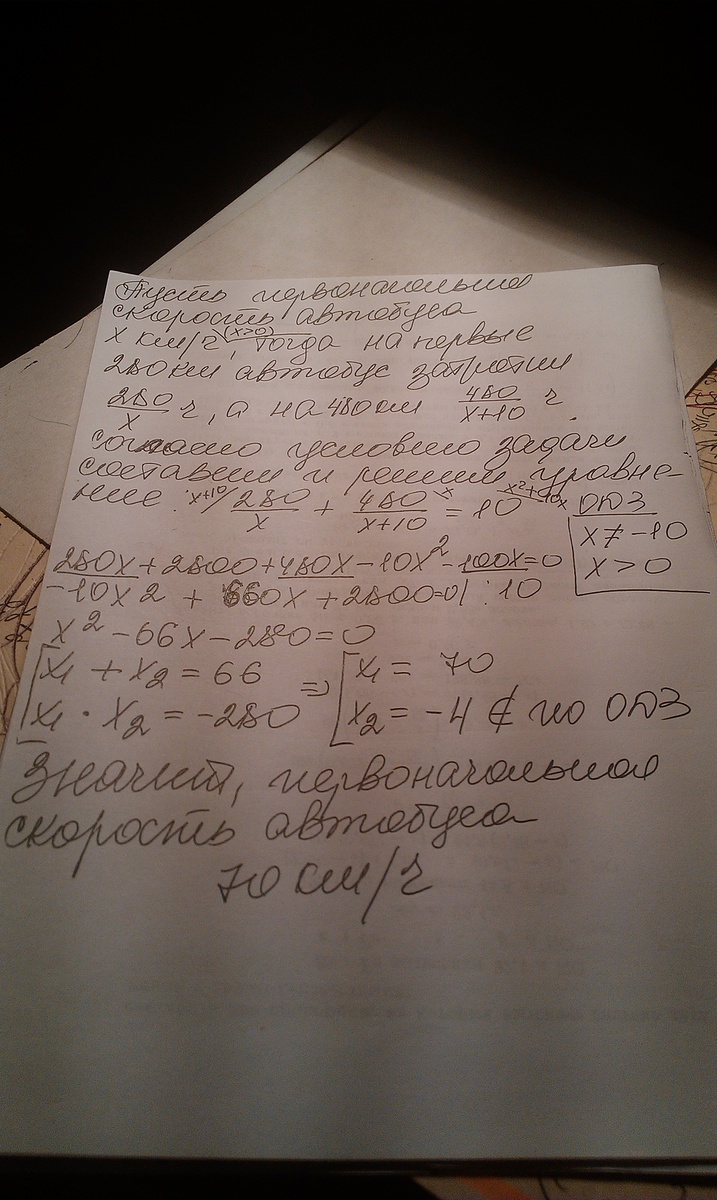 Пусть первоначальная
скорость автобуса
x км/ч (x>0), тогда на первые
280км автобус затратил
280/x ч, а на 480км 480/x+10 ч
согласно условию задачи
составим и решим уравне-
ние: x+10/ 280/x + 480/x+10 \x = 10 \x²+10x ОДЗ
x ≠ -10
x > 0
280x + 2800 + 480x - 10x² - 100x = 0
-10x2 + 660x + 2800=0| : 10
x² - 66x - 280 = 0
[x₁ + x₂ = 66 => [x₁ = 70
[x₁ · x₂ = -280 [x₂ = -4 ∉ по ОДЗ
Значит, первоначальная
скорость автобуса
70 км/ч